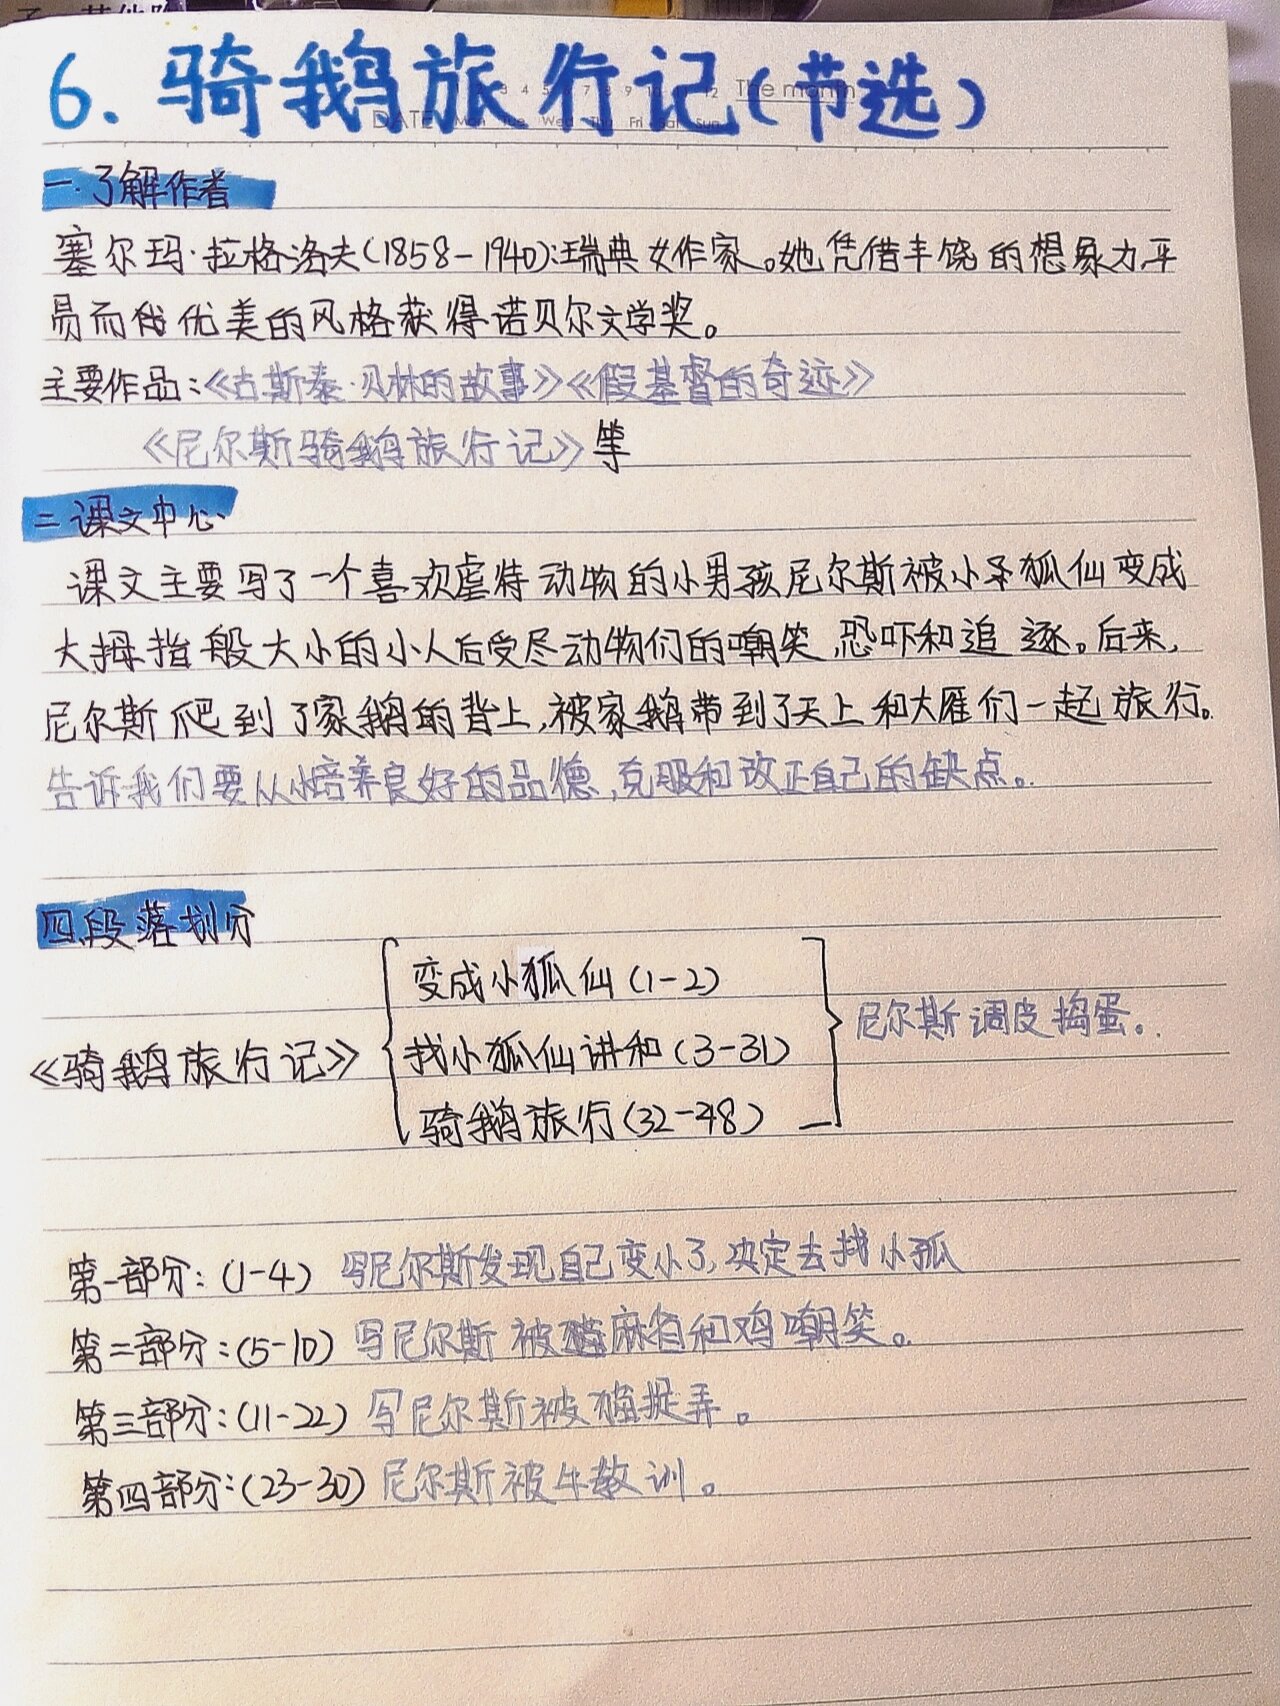 6.骑鹅旅行记(节选)
3 4 5 7 8 9 10 12 The month
DATE Mon Tue Wed Thu Fri Sat Sun
一.了解作者
塞尔玛·拉格洛夫(1858-1940):瑞典女作家。她凭借丰饶的想象力,平
易而优美的风格获得诺贝尔文学奖。
主要作品:《古斯泰·贝林的故事》《假基督的奇迹》
《尼尔斯骑鹅旅行记》等
二 课文中心
课文主要写了一个喜欢虐待动物的小男孩尼尔斯被小狐仙变成
大拇指般大小的小人后受尽动物们的嘲笑,恐吓和追逐。后来,
尼尔斯爬到了家鹅的背上,被家鹅带到了天上和大雁们一起旅行。
告诉我们要从小培养良好的品德,克服和改正自己的缺点。
四.段落划分
变成小狐仙(1-2)
《骑鹅旅行记》 找小狐仙讲和(3-31) 尼尔斯调皮捣蛋。
骑鹅旅行(32-48)
第一部分:(1-4) 写尼尔斯发现自己变小了,决定去找小狐
第二部分:(5-10) 写尼尔斯被麻雀和鸡嘲笑。
第三部分:(11-22) 写尼尔斯被猫捉弄。
第四部分:(23-30) 尼尔斯被牛教训。